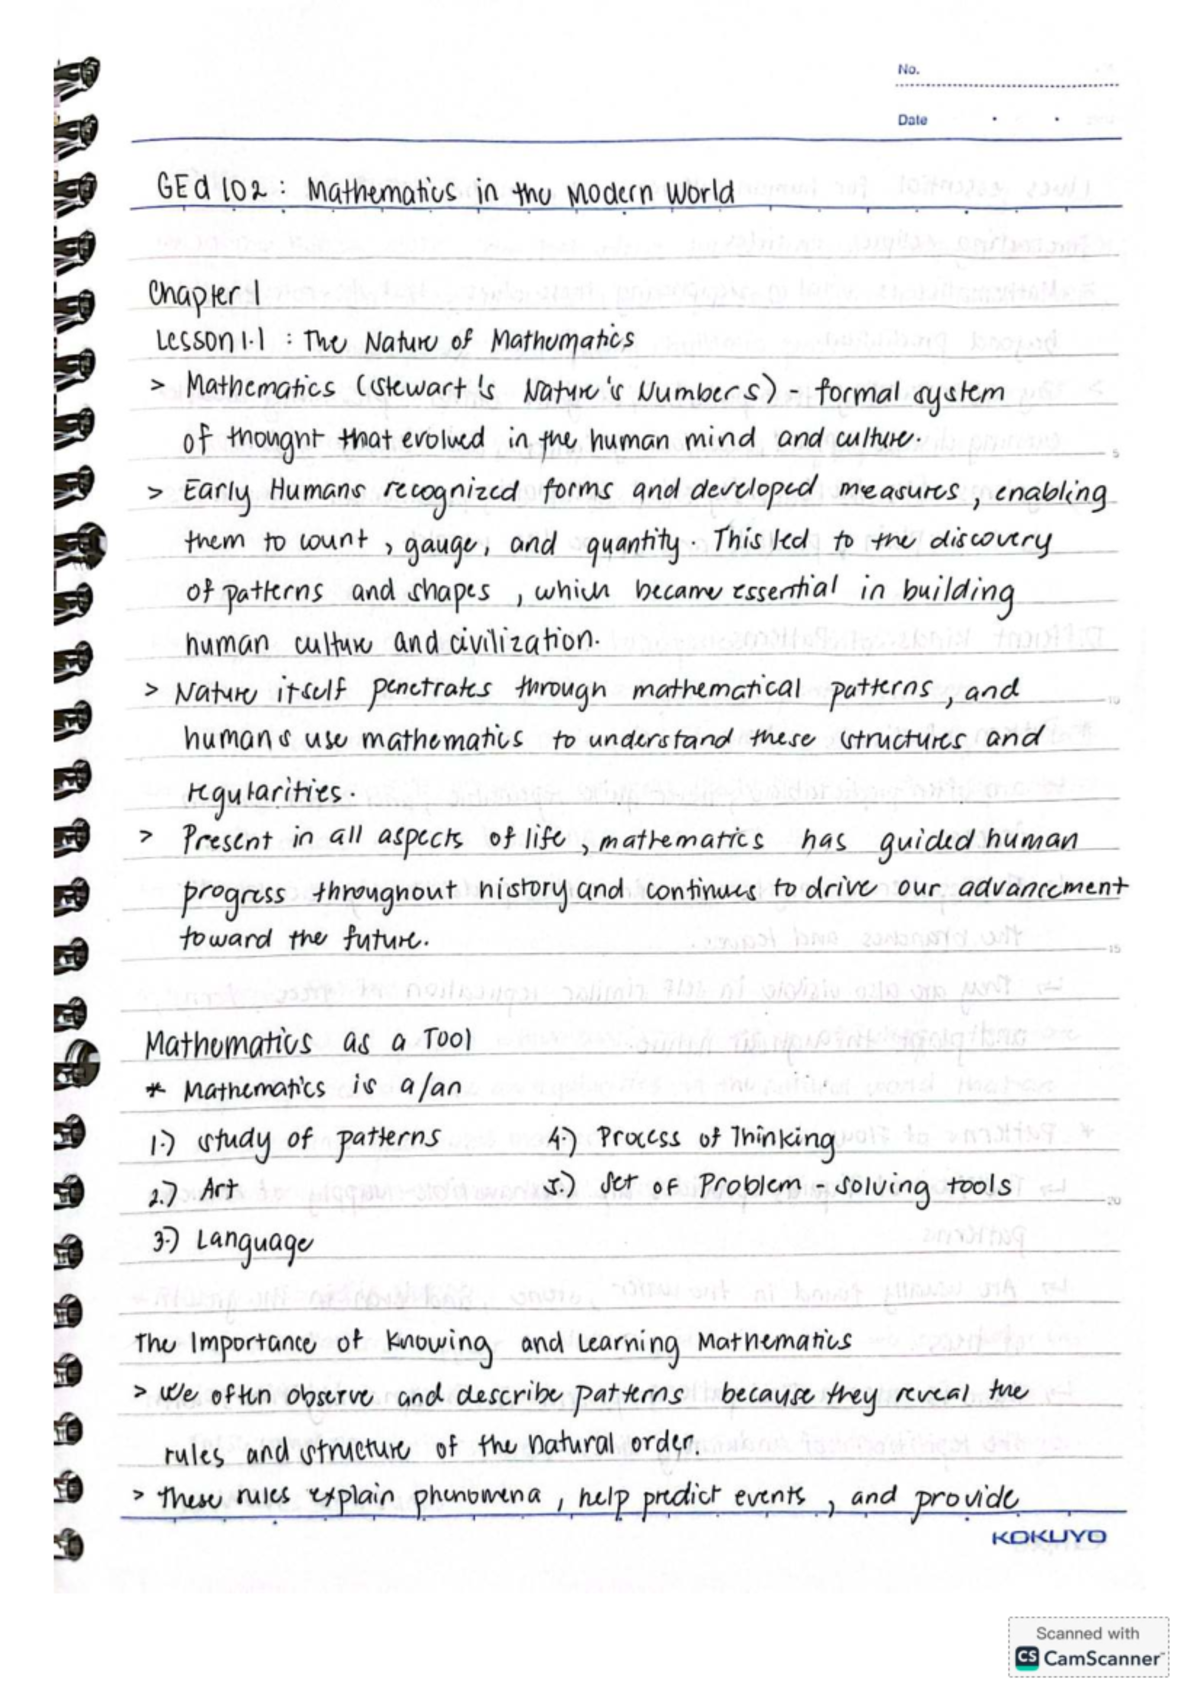 No.
Date
GEd 102 : Mathematics in the Modern World
Chapter 1
Lesson 1.1 : The Nature of Mathematics
> Mathematics (Stewart's Nature's Numbers) - formal system
of thought that evolved in the human mind and culture.
> Early Humans recognized forms and developed measures, enabling
them to count, gauge, and quantity. This led to the discovery
of patterns and shapes, which became essential in building
human culture and civilization.
> Nature itself penetrates through mathematical patterns, and
humans use mathematics to understand these structures and
regularities.
> Present in all aspects of life, mathematics has guided human
progress throughout history and continues to drive our advancement
toward the future.
Mathematics as a Tool
* Mathematics is a/an
1.) study of patterns 4.) Process of Thinking
2.) Art 5.) Set of Problem - solving tools
3.) Language
The Importance of Knowing and Learning Mathematics
> We often observe and describe patterns because they reveal the
rules and structure of the natural order.
> These rules explain phenomena, help predict events, and provide
5
10
15
20
KOKUYO
Scanned with
CS CamScanner